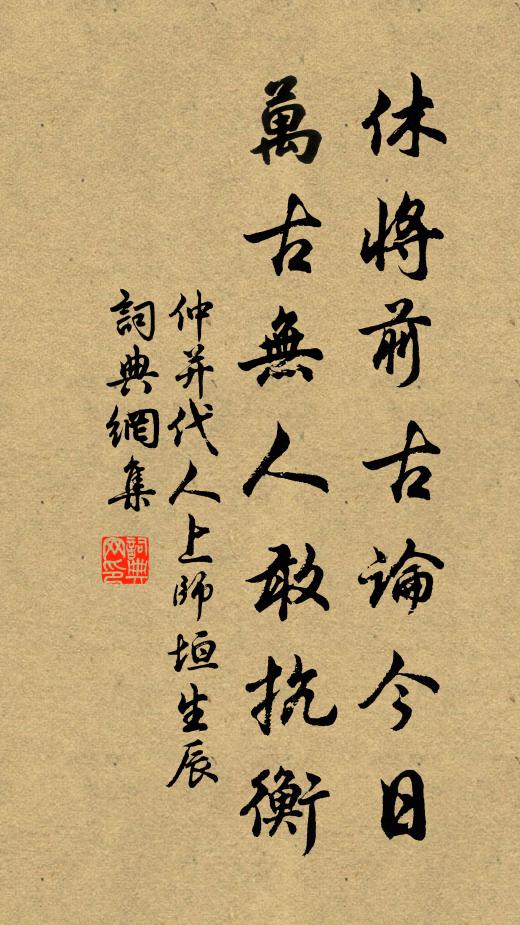 休將前古論今日
萬古無人敢抗衡
仲并代人上師垣生辰
詞典網集
詞典网印